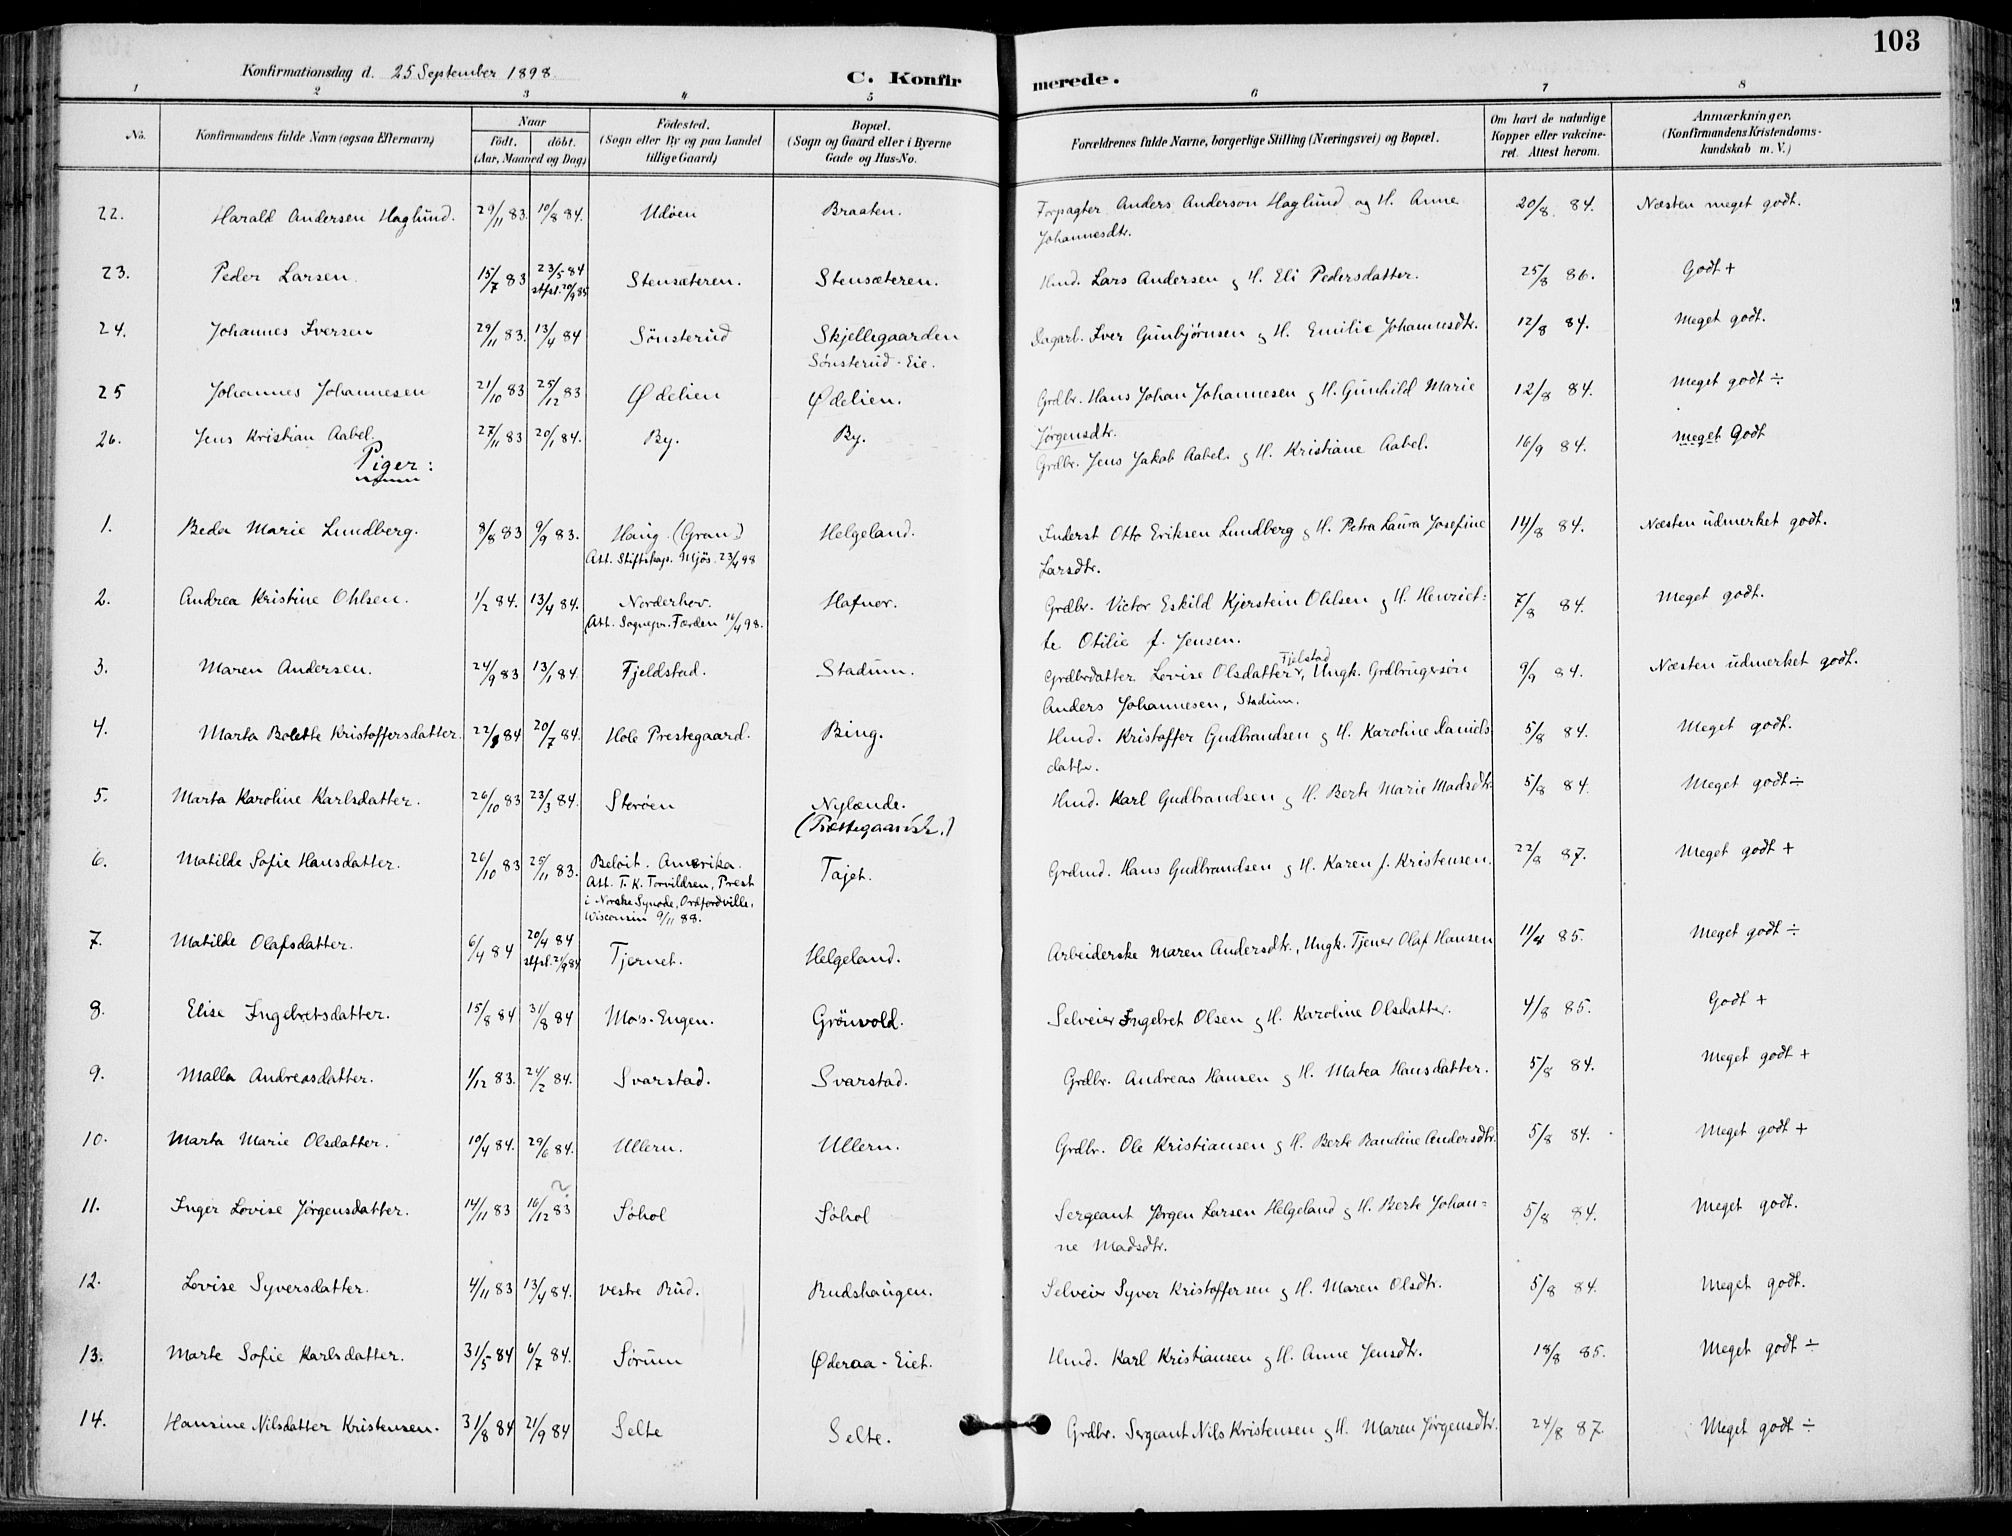 103
Konfirmationsdag d. 25 September 1898.
C. Konfirmerede.
1 2 3 4 5 6 7 8
No.
Konfirmandens fulde Navn (ogsaa Efternavn)
Naar
født. døbt.
(Aar, Maaned og Dag)
Fødested.
(Sogn eller By og paa Landet
tillige Gaard)
Bopæl.
(Sogn og Gaard eller i Byerne
Gade og Hus-No.
Forældrenes fulde Navne, borgerlige Stilling (Næringsvei) og Bopæl.
Om havt de naturlige
Kopper eller vaccine-
ret. Attest herom.
Anmærkninger,
(Konfirmandens Kristendoms-
kundskab m. V.)
22. Harald Andersen Haglund. 29/11 83. 10/8 84. Udøen Braaten. Forpagter Anders Anderson Haglund og H. Anne 20/8. 84. Næsten meget godt.
Johannesdtr.
23. Peder Larsen. 15/7 83 23/5 84 Stensæteren. Stensæteren. Hmd. Lars Andersen & H. Eli Pedersdatter. 25/8 86. Godt +
stfst. 20/9 85
24. Johannes Iversen 29/11 83. 13/4 84 Sønsterud Skjellegaarden Dagarb. Iver Gunbjørnsen & H. Emilie Johannesdtr. 12/8 84. Meget godt.
Sønsterud-Eie.
25 Johannes Johannesen 21/10 83 25/12 83 Ødelien Ødelien. Grdbr. Hans Johan Johannesen & H. Gunhild Marie 12/8 84. Meget godt ÷
Jørgensdtr.
26. Jens Kristian Aabel. 27/11 83 20/1 84. By. By. Grdbr. Jens Jakob Aabel. & H. Kristiane Aabel. 16/9 84. Meget Godt
Piger:
1. Beda Marie Lundberg. 8/8 83 9/9 83. Haug. (Gran.) Helgeland. Inderst Otto Eriksen Lundberg & H. Petra Laura Josefine 14/8 84. Næsten udmerket godt.
Att. Stiftskap. Mjøs. 23/4 98
Larsdtr.
2. Andrea Kristine Ohlsen. 1/2 84. 13/4 84. Norderhov. Hafnor. Grdbr. Victor Eskild Kjerstein Ohlsen & H. Henriet- 7/8 84. Meget godt.
Att. Sognepr. Færden 16/4 98.
te Otilie f. Jensen.
3. Maren Andersen. 24/9 83 13/1 84. Fjeldstad. Stadum. Grdbrdatter Lovise Olsdatter Fjelstad, Ungk. Grdbrugersøn 9/9 84. Næsten udmerket godt.
Anders Johannesen, Stadum.
4. Marta Bolette Kristoffersdatter. 22/3 84 20/7 84. Hole Prestegaard. Bing. Hmd. Kristoffer Gudbrandsen & H. Karoline Daniels- 5/8 84. Meget godt.
datter.
5. Marta Karoline Karlsdatter. 26/10 83 23/3 84. Storøen Nylænde. Hmd. Karl Gudbrandsen & H. Berte Marie Madsdtr. 5/8 84. Meget godt ÷
6. Matilde Sofie Hansdatter. 26/10 83 25/11 83. Beloit. Amerika. Tajet. Grdmd. Hans Gudbrandsen & H. Karen f. Kristensen. 22/8 87. Meget godt +
Att. T. K. Torvildsen, Prest
i Norske Synode, Orfordville,
Wisconsin 9/11 88.
7. Matilde Olafsdatter. 6/4 84 20/4 84 Tjernet. Helgeland. Arbeiderske Maren Andersdtr., Ungk. Tjener Olaf Hansen 11/4 85. Meget godt ÷
stfst. 21/9 84
8. Elise Ingebretsdatter. 15/8 84 31/8 84 Mo's-Engen. Grønvold. Selveier Ingebret Olsen & H. Karoline Olsdatter. 4/8 85. Godt +
9. Malla Andreasdatter. 1/12 83. 24/2 84. Svarstad. Svarstad. Grdbr. Andreas Hansen & H. Matea Hansdatter. 5/8 84. Meget godt +
10. Marta Marie Olsdatter. 10/4 84. 29/6 84. Ullern. Ullern. Grdbr. Ole Kristiansen & H. Berte Bandine Andersdtr. 5/8 84. Meget godt +
11. Inger Lovise Jørgensdatter. 14/11 83 16/12 83 Søhol Søhol Sergeant Jørgen Larsen Helgeland & H. Berte Johan- 5/8 84. Meget godt.
ne Madsdtr.
12. Lovise Syversdatter. 4/11 83 13/4 84. vestre Bud. Budshaugen. Selveier Syver Kristoffersen & H. Maren Olsdtr. 5/8 84. Meget godt.
13. Marte Sofie Karlsdatter. 31/5 84 6/7 84. Sørum Øderaa-Eiet. Hmd. Karl Kristiansen & H. Anne Jensdtr. 18/8 85. Meget godt ÷
14. Hansine Nilsdatter Kristensen. 31/8 84 21/9 84 Selte Selte. Grdbr. Sergeant Nils Kristensen & H. Maren Jørgensdtr. 24/8 87. Meget godt ÷